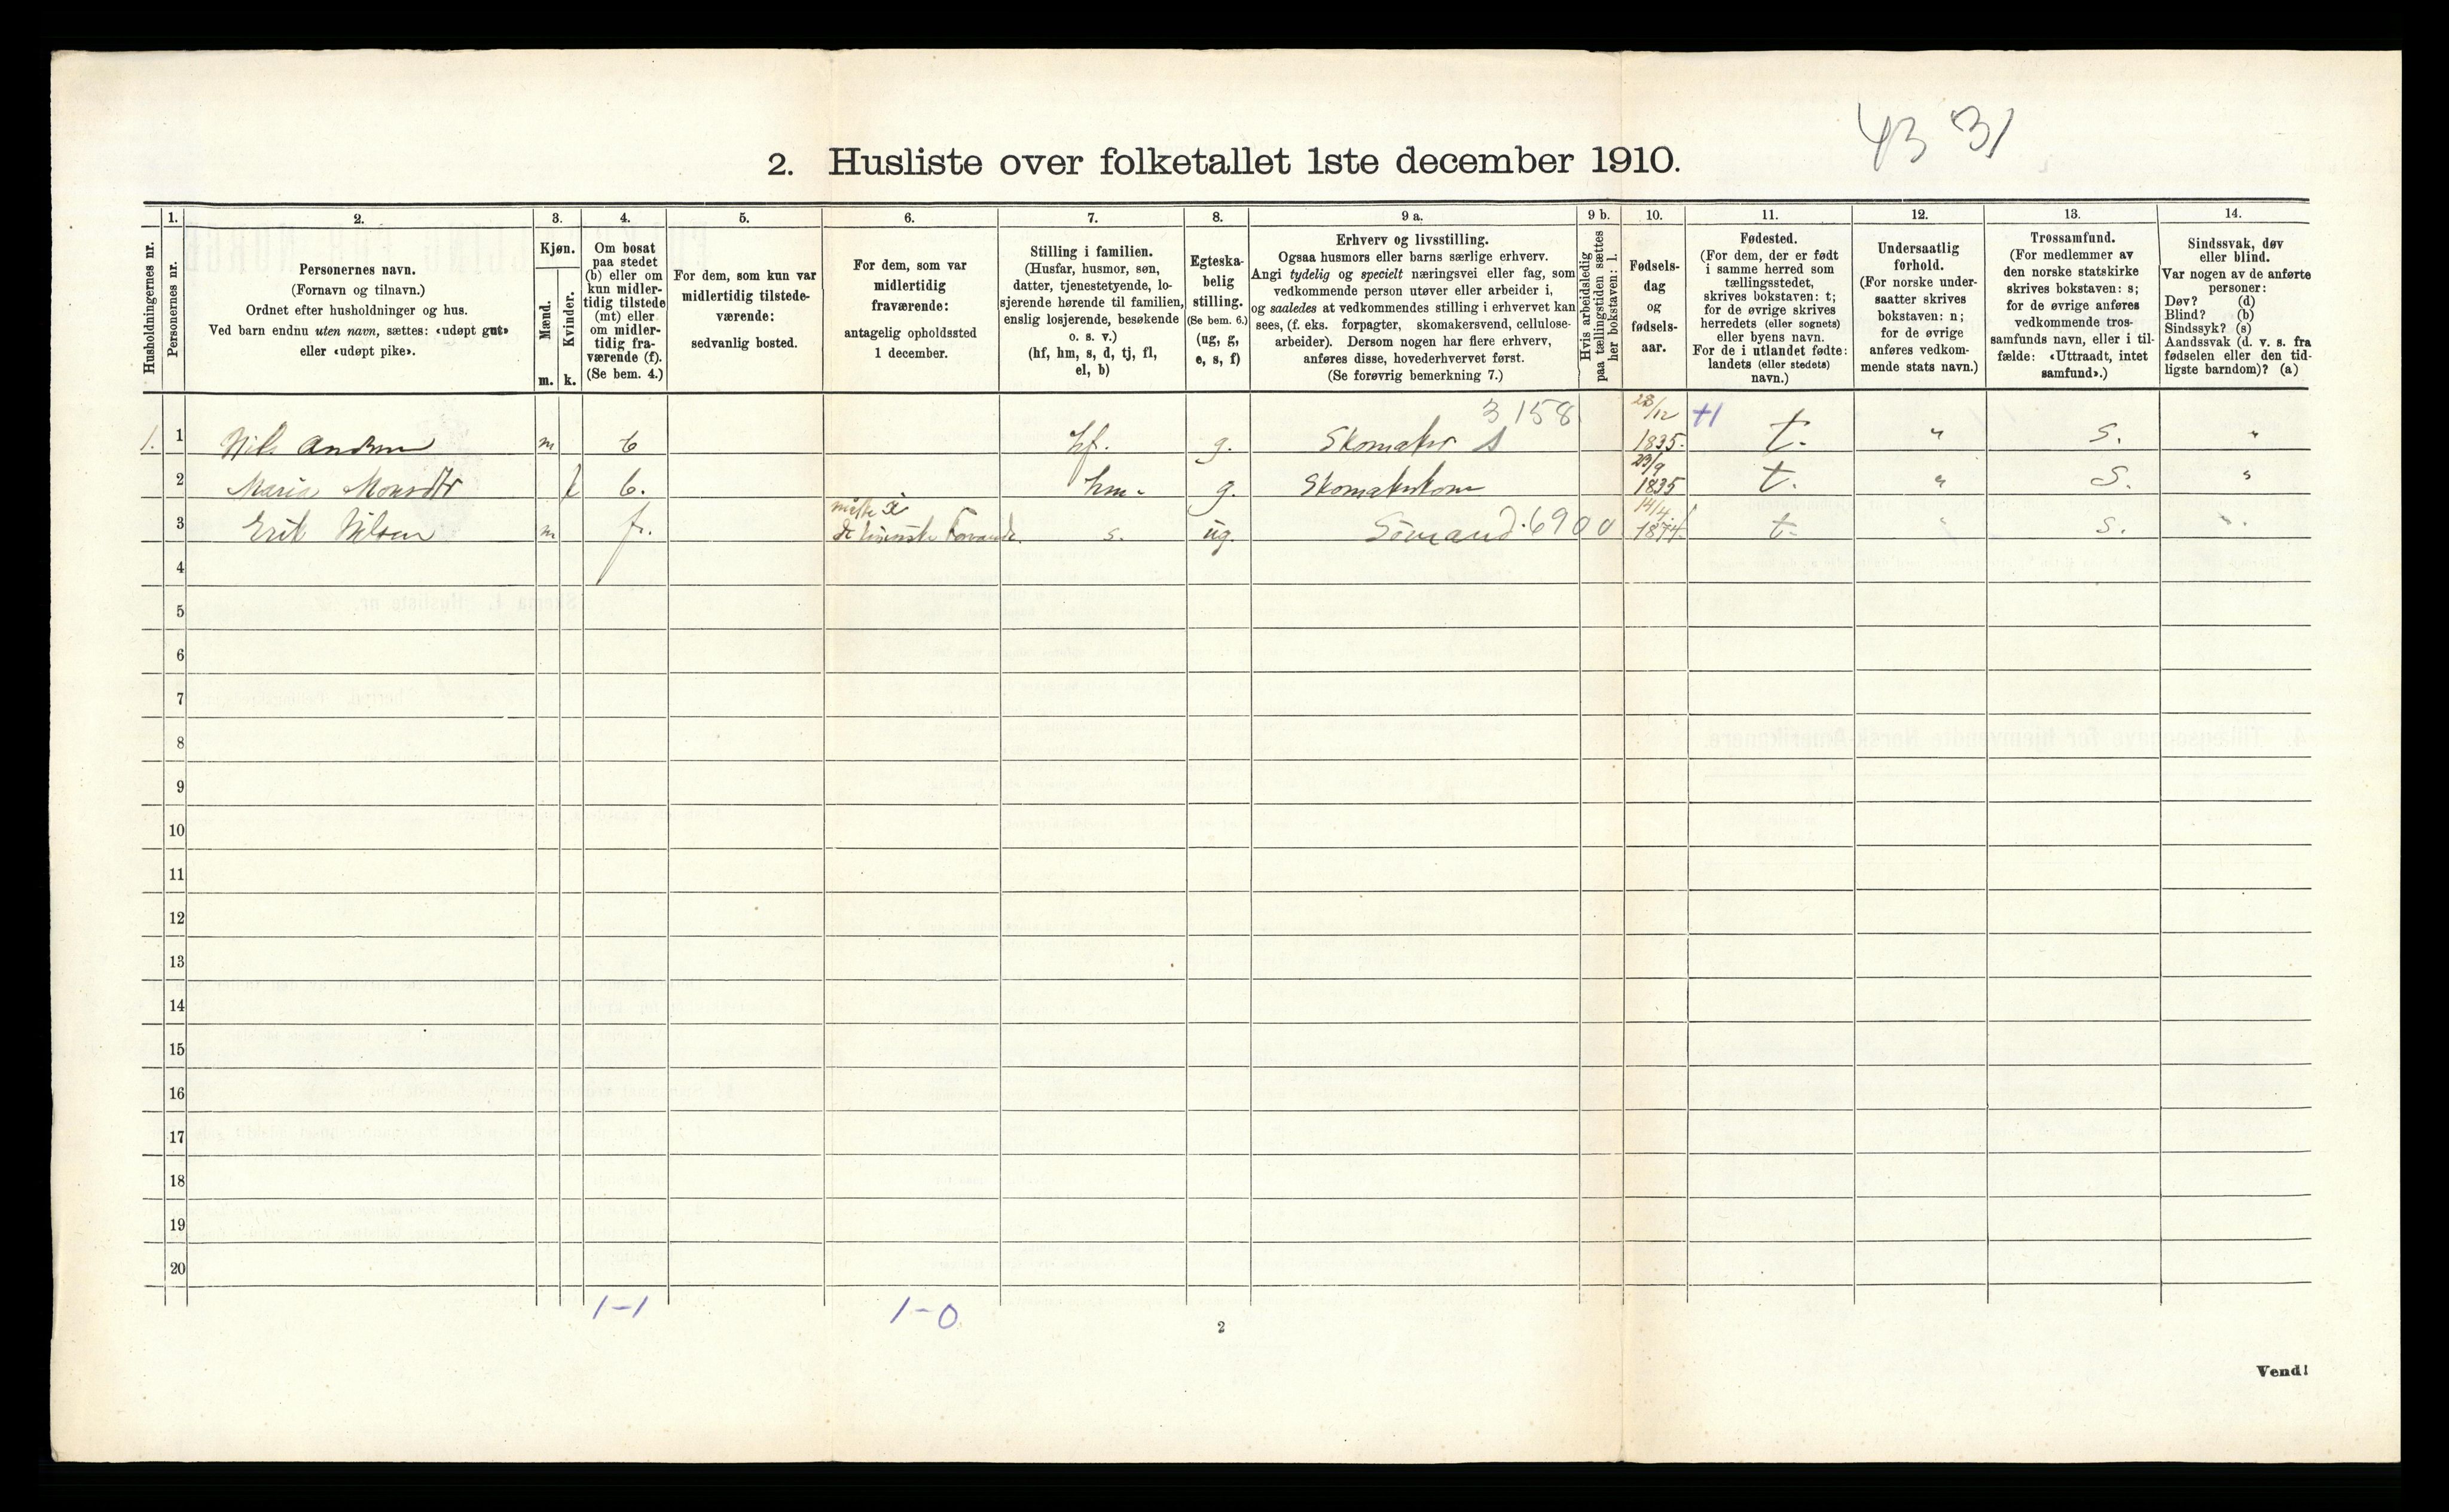 43 31
2. Husliste over folketallet 1ste december 1910.
Husholdningernes nr.
1.
Personernes nr.
2.
Personernes navn.
(Fornavn og tilnavn.)
Ordnet efter husholdninger og hus.
Ved barn endnu uten navn, sættes: «udøpt gut»
eller «udøpt pike».
3.
Kjøn.
Mænd.
m.
Kvinder.
k.
4.
Om bosat
paa stedet
(b) eller om
kun midler-
tidig tilstede
(mt) eller
om midler-
tidig fra-
værende (f).
(Se bem. 4.)
5.
For dem, som kun var
midlertidig tilstede-
værende:
sedvanlig bosted.
6.
For dem, som var
midlertidig
fraværende:
antagelig opholdssted
1 december.
7.
Stilling i familien.
(Husfar, husmor, søn,
datter, tjenestetyende, lo-
sjerende hørende til familien,
enslig losjerende, besøkende
o. s. v.)
(hf, hm, s, d, tj, fl,
el, b)
8.
Egteska-
belig
stilling.
(Se bem. 6.)
(ug, g,
e, s, f)
9 a.
Erhverv og livsstilling.
Ogsaa husmors eller barns særlige erhverv.
Angi tydelig og specielt næringsvei eller fag, som
vedkommende person utøver eller arbeider i,
og saaledes at vedkommendes stilling i erhvervet kan
sees, (f. eks. forpagter, skomakersvend, cellulose-
arbeider). Dersom nogen har flere erhverv,
anføres disse, hovederhvervet først.
(Se forøvrig bemerkning 7.)
9 b.
Hvis arbeidsledig
paa tællingstiden sættes
her bokstaven: l.
10.
Fødsels-
dag
og
fødsels-
aar.
11.
Fødested.
(For dem, der er født
i samme herred som
tællingsstedet,
skrives bokstaven: t;
for de øvrige skrives
herredets (eller sognets)
eller byens navn.
For de i utlandet fødte:
landets (eller stedets)
navn.)
12.
Undersaatlig
forhold.
(For norske under-
saatter skrives
bokstaven: n;
for de øvrige
anføres vedkom-
mende stats navn.)
13.
Trossamfund.
(For medlemmer av
den norske statskirke
skrives bokstaven: s;
for de øvrige anføres
vedkommende tros-
samfunds navn, eller i til-
fælde: «Uttraadt, intet
samfund».)
14.
Sindssvak, døv
eller blind.
Var nogen av de anførte
personer:
Døv? (d)
Blind? (b)
Sindssyk? (s)
Aandssvak (d. v. s. fra
fødselen eller den tid-
ligste barndom)? (a)
1. 1 Nils Andersen m b hf. g. Skomaker s 3158 28/12 1835. t. " s. "
2 Maria Monsdtr k b. hm. g. Skomakerkone 23/9 1835 t. " s. "
3 Erik Nilsen m f. s. ug. Sömand 6900 14/4 1874 t. " s. "
4
5
6
7
8
9
10
11
12
13
14
15
16
17
18
19
20
1-1 1-0
2
Vend!